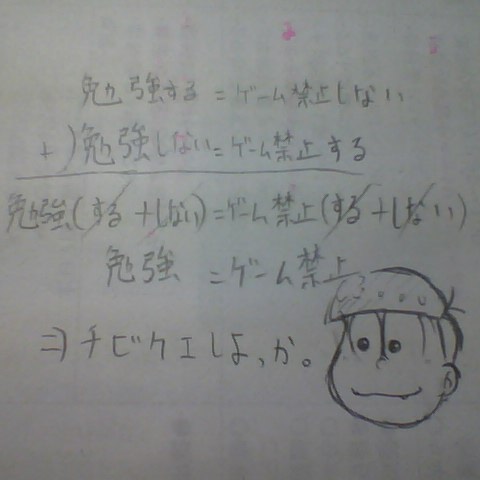 勉強する=ゲーム禁止しない
+)勉強しない=ゲーム禁止する
勉強(する+しない)=ゲーム禁止(する+しない)
勉強 =ゲーム禁止
⇒チビケエしよっか。